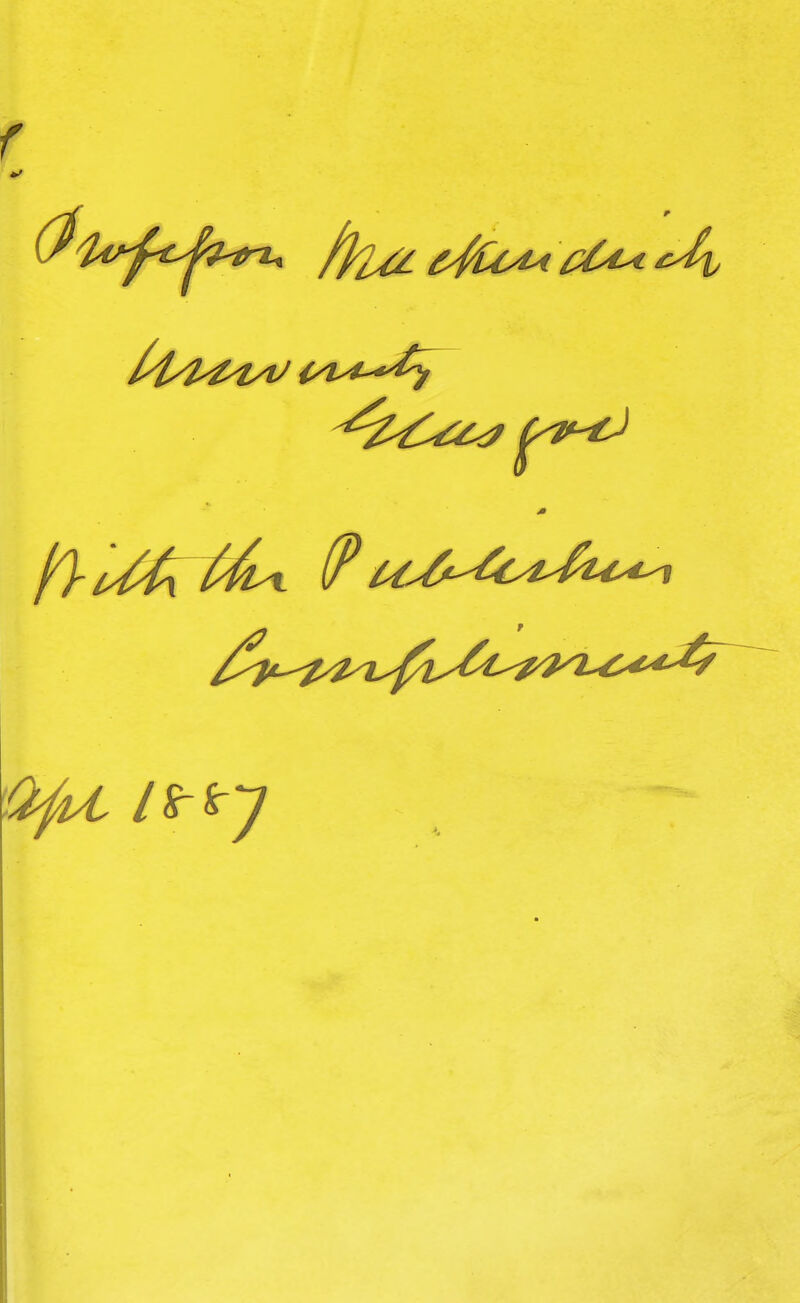 Professor MacKendrick
University
Glasgow
With the Publishers
Compliments
Apl 1887